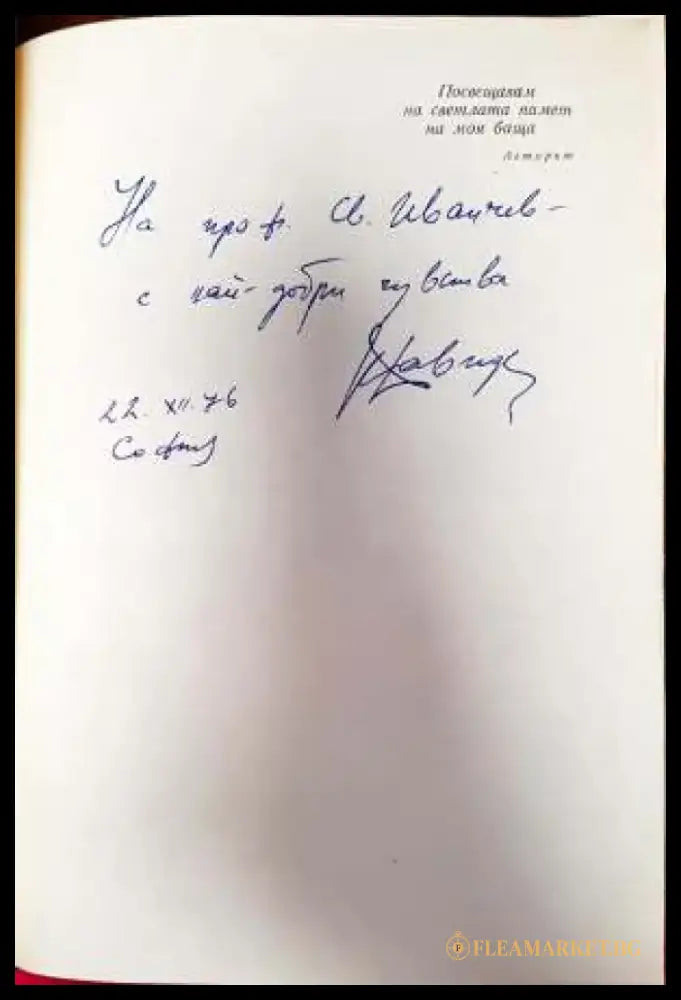 Посвещавам
на светлата памет
на моя баща
Авторът
На проф. Св. Иванчев –
с най-добри чувства
22. XII. 76
София
FLEAMARKET.BG